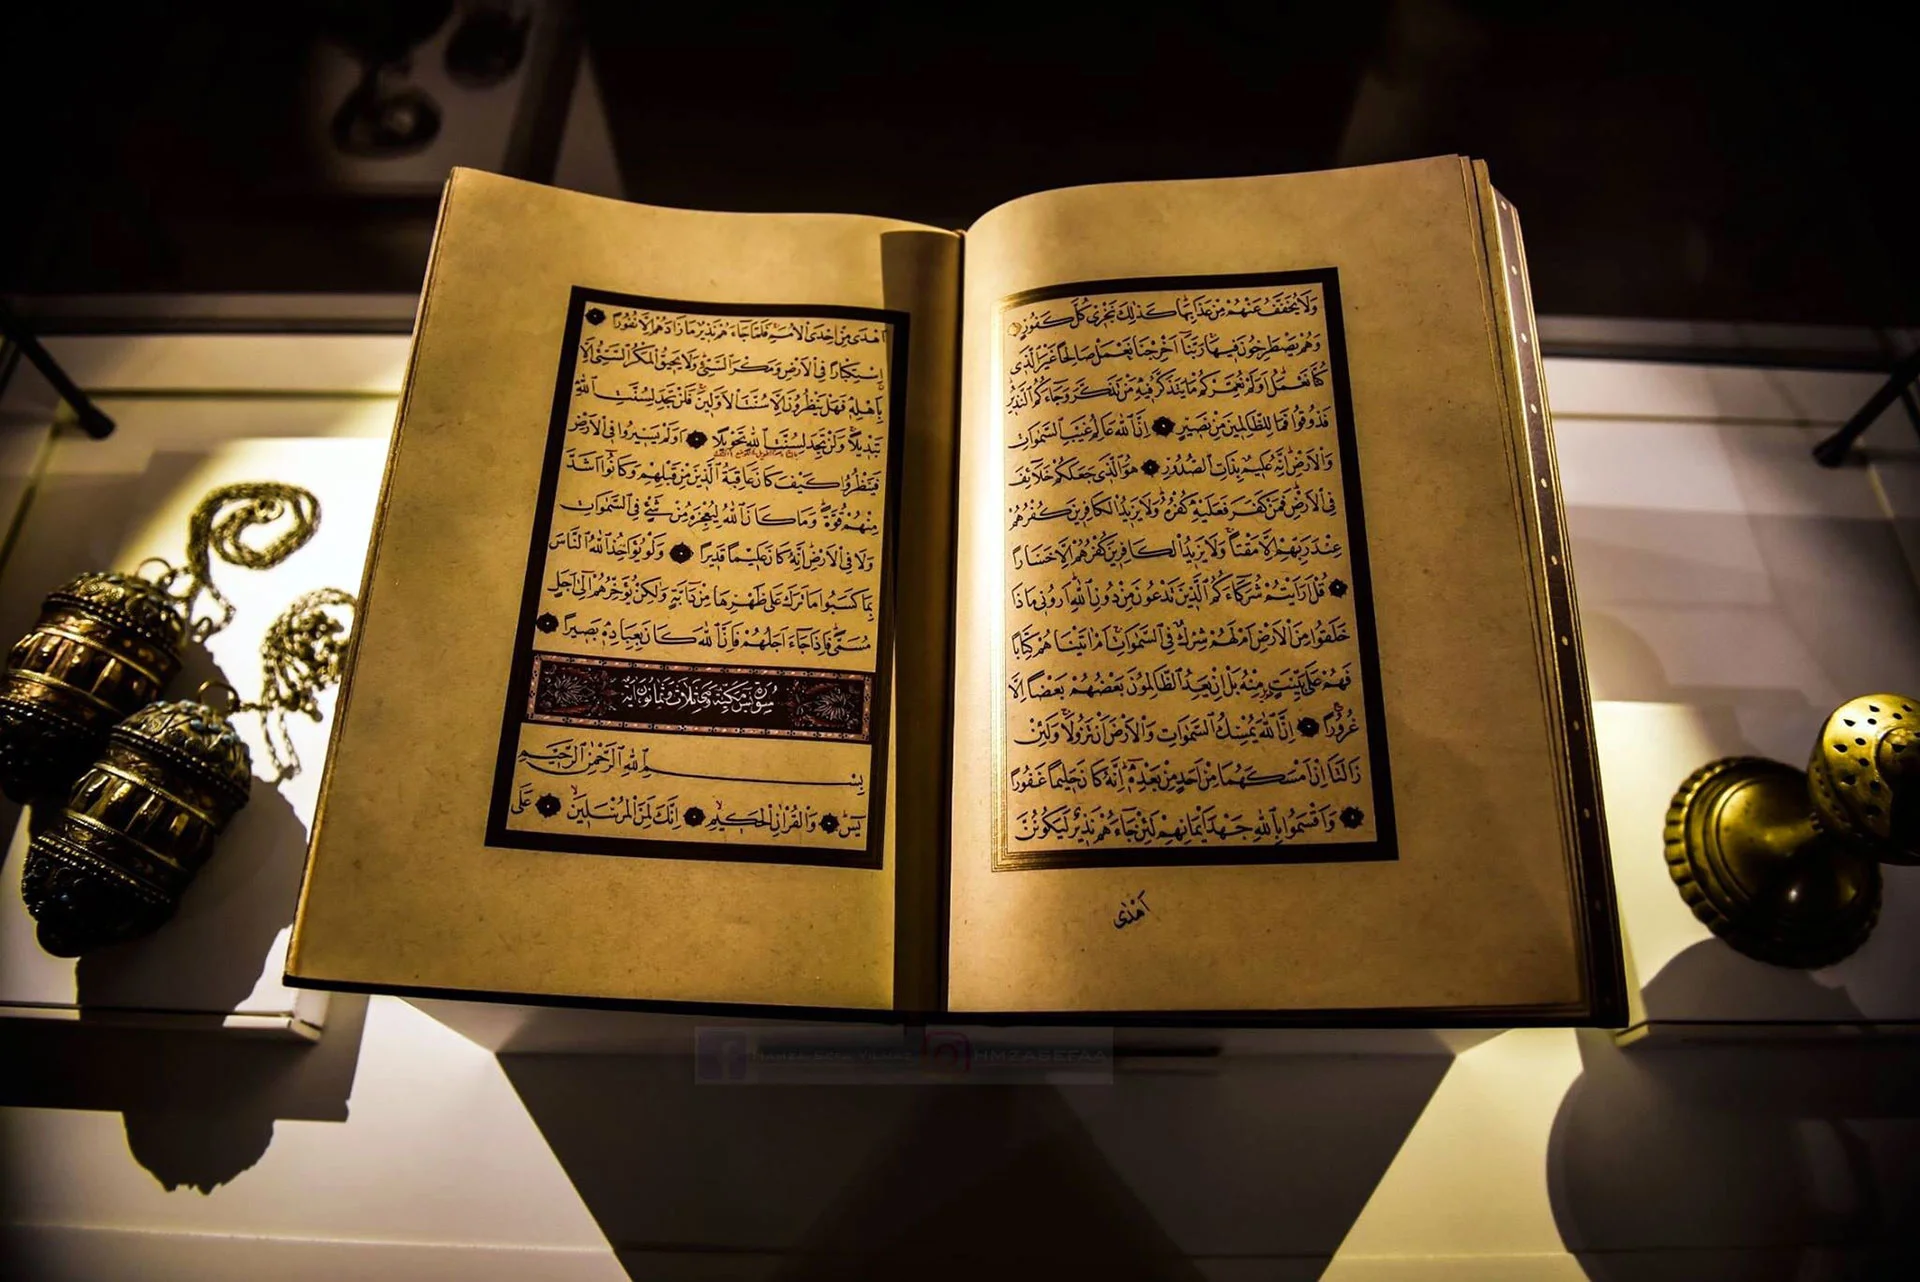 وَلَا يُخَفَّفُ عَنْهُمْ مِنْ عَذَابِهَا كَذٰلِكَ نَجْزِى كُلَّ كَفُورٍ
وَهُمْ يَصْطَرِخُونَ فِيهَا رَبَّنَا اَخْرِجْنَا نَعْمَلْ صَالِحًا غَيْرَ الَّذِى
كُنَّا نَعْمَلُ اَوَلَمْ نُعَمِّرْكُمْ مَا يَتَذَكَّرُ فِيهِ مَنْ تَذَكَّرَ وَجَاءَكُمُ النَّذِيرُ
فَذُوقُوا فَمَا لِلظَّالِمِينَ مِنْ نَصِيرٍ اِنَّ اللّٰهَ عَالِمُ غَيْبِ السَّمٰوَاتِ
وَالْاَرْضِ اِنَّهُ عَلِيمٌ بِذَاتِ الصُّدُورِ هُوَ الَّذِى جَعَلَكُمْ خَلَائِفَ
فِى الْاَرْضِ فَمَنْ كَفَرَ فَعَلَيْهِ كُفْرُهُ وَلَا يَزِيدُ الْكَافِرِينَ كُفْرُهُمْ
عِنْدَ رَبِّهِمْ اِلَّا مَقْتًا وَلَا يَزِيدُ الْكَافِرِينَ كُفْرُهُمْ اِلَّا خَسَارًا
قُلْ اَرَاَيْتُمْ شُرَكَاءَكُمُ الَّذِينَ تَدْعُونَ مِنْ دُونِ اللّٰهِ اَرُونِى مَاذَا
خَلَقُوا مِنَ الْاَرْضِ اَمْ لَهُمْ شِرْكٌ فِى السَّمٰوَاتِ اَمْ اٰتَيْنَاهُمْ كِتَابًا
فَهُمْ عَلٰى بَيِّنَتٍ مِنْهُ بَلْ اِنْ يَعِدُ الظَّالِمُونَ بَعْضُهُمْ بَعْضًا اِلَّا
غُرُورًا اِنَّ اللّٰهَ يُمْسِكُ السَّمٰوَاتِ وَالْاَرْضَ اَنْ تَزُولَا وَلَئِنْ
زَالَتَا اِنْ اَمْسَكَهُمَا مِنْ اَحَدٍ مِنْ بَعْدِهِ اِنَّهُ كَانَ حَلِيمًا غَفُورًا
وَاَقْسَمُوا بِاللّٰهِ جَهْدَ اَيْمَانِهِمْ لَئِنْ جَاءَهُمْ نَذِيرٌ لَيَكُونُنَّ
اَهْدٰى
اَهْدٰى مِنْ اِحْدَى الْاُمَمِ فَلَمَّا جَاءَهُمْ نَذِيرٌ مَا زَادَهُمْ اِلَّا نُفُورًا
اِسْتِكْبَارًا فِى الْاَرْضِ وَمَكْرَ السَّيِّئِ وَلَا يَحِيقُ الْمَكْرُ السَّيِّئُ اِلَّا
بِاَهْلِهِ فَهَلْ يَنْظُرُونَ اِلَّا سُنَّتَ الْاَوَّلِينَ فَلَنْ تَجِدَ لِسُنَّتِ اللّٰهِ
تَبْدِيلًا وَلَنْ تَجِدَ لِسُنَّتِ اللّٰهِ تَحْوِيلًا اَوَلَمْ يَسِيرُوا فِى الْاَرْضِ
فَيَنْظُرُوا كَيْفَ كَانَ عَاقِبَةُ الَّذِينَ مِنْ قَبْلِهِمْ وَكَانُوا اَشَدَّ
مِنْهُمْ قُوَّةً وَمَا كَانَ اللّٰهُ لِيُعْجِزَهُ مِنْ شَىْءٍ فِى السَّمٰوَاتِ
وَلَا فِى الْاَرْضِ اِنَّهُ كَانَ عَلِيمًا قَدِيرًا وَلَوْ يُؤَاخِذُ اللّٰهُ النَّاسَ
بِمَا كَسَبُوا مَا تَرَكَ عَلٰى ظَهْرِهَا مِنْ دَابَّةٍ وَلٰكِنْ يُؤَخِّرُهُمْ اِلٰى اَجَلٍ
مُسَمًّى فَاِذَا جَاءَ اَجَلُهُمْ فَاِنَّ اللّٰهَ كَانَ بِعِبَادِهِ بَصِيرًا
سورة يس مكية وهى ثلاث وثمانون اية
بِسْمِ اللّٰهِ الرَّحْمٰنِ الرَّحِيمِ
يٰسٓ وَالْقُرْاٰنِ الْحَكِيمِ اِنَّكَ لَمِنَ الْمُرْسَلِينَ عَلٰى
HMZASEFAA